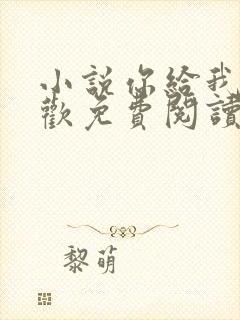 小說你給我
歡免費閱讀
黎萌